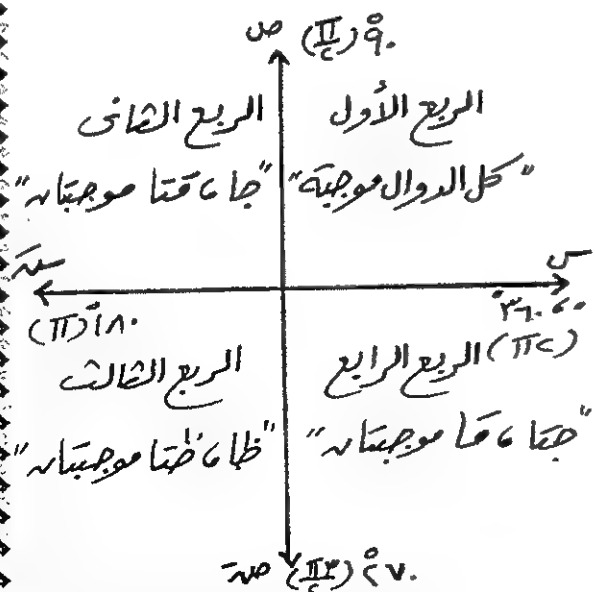 ص ٩٠° (π/٢)
الربع الأول
"كل الدوال موجبة"
الربع الثانى
"جا ، قتا موجبتان"
س
٠ ، ٣٦٠°
(٢π)
سَ
١٨٠° (π)
الربع الثالث
"ظا ، ظتا موجبتان"
الربع الرابع
"جتا ، قا موجبتان"
٢٧٠° (٣π/٢) صَ